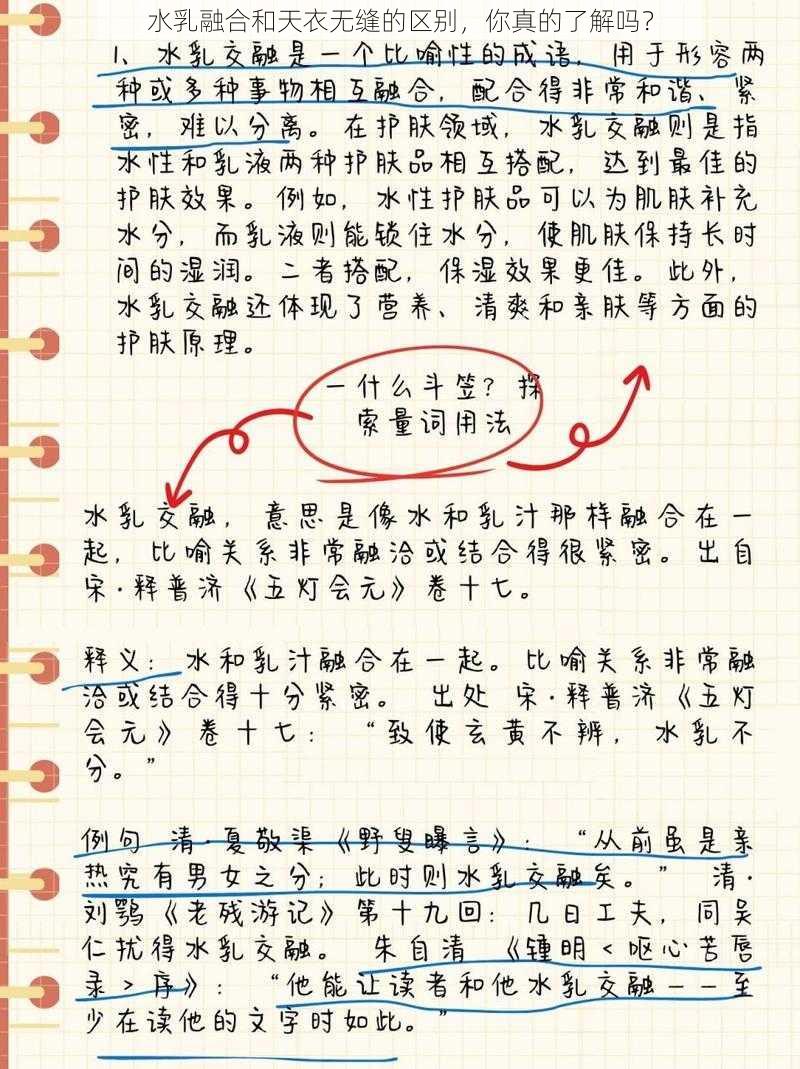 水乳融合和天衣无缝的区别，你真的了解吗？
1、水乳交融是一个比喻性的成语，用于形容两
种或多种事物相互融合，配合得非常和谐、紧
密，难以分离。在护肤领域，水乳交融则是指
水性和乳液两种护肤品相互搭配，达到最佳的
护肤效果。例如，水性护肤品可以为肌肤补充
水分，而乳液则能锁住水分，使肌肤保持长时
间的湿润。二者搭配，保湿效果更佳。此外，
水乳交融还体现了营养、清爽和亲肤等方面的
护肤原理。
一什么斗笠？探
索量词用法
水乳交融，意思是像水和乳汁那样融合在一
起，比喻关系非常融洽或结合得很紧密。出自
宋·释普济《五灯会元》卷十七。
释义：水和乳汁融合在一起。比喻关系非常融
洽或结合得十分紧密。 出处 宋·释普济《五灯
会元》卷十七：“致使玄黄不辨，水乳不
分。”
例句 清·夏敬渠《野叟曝言》：“从前虽是亲
热究有男女之分；此时则水乳交融矣。” 清·
刘鹗《老残游记》第十九回：几日工夫，同吴
仁扰得水乳交融。 朱自清 《锺明<呕心苦唇
录>序》：“他能让读者和他水乳交融——至
少在读他的文字时如此。”